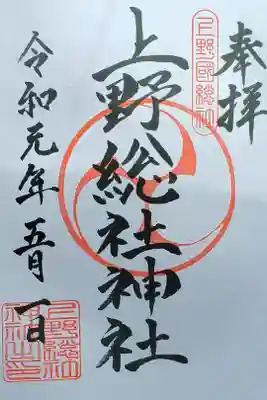 奉拝
上野國総社
上野総社神社
令和元年五月一日
上野総社神社之印